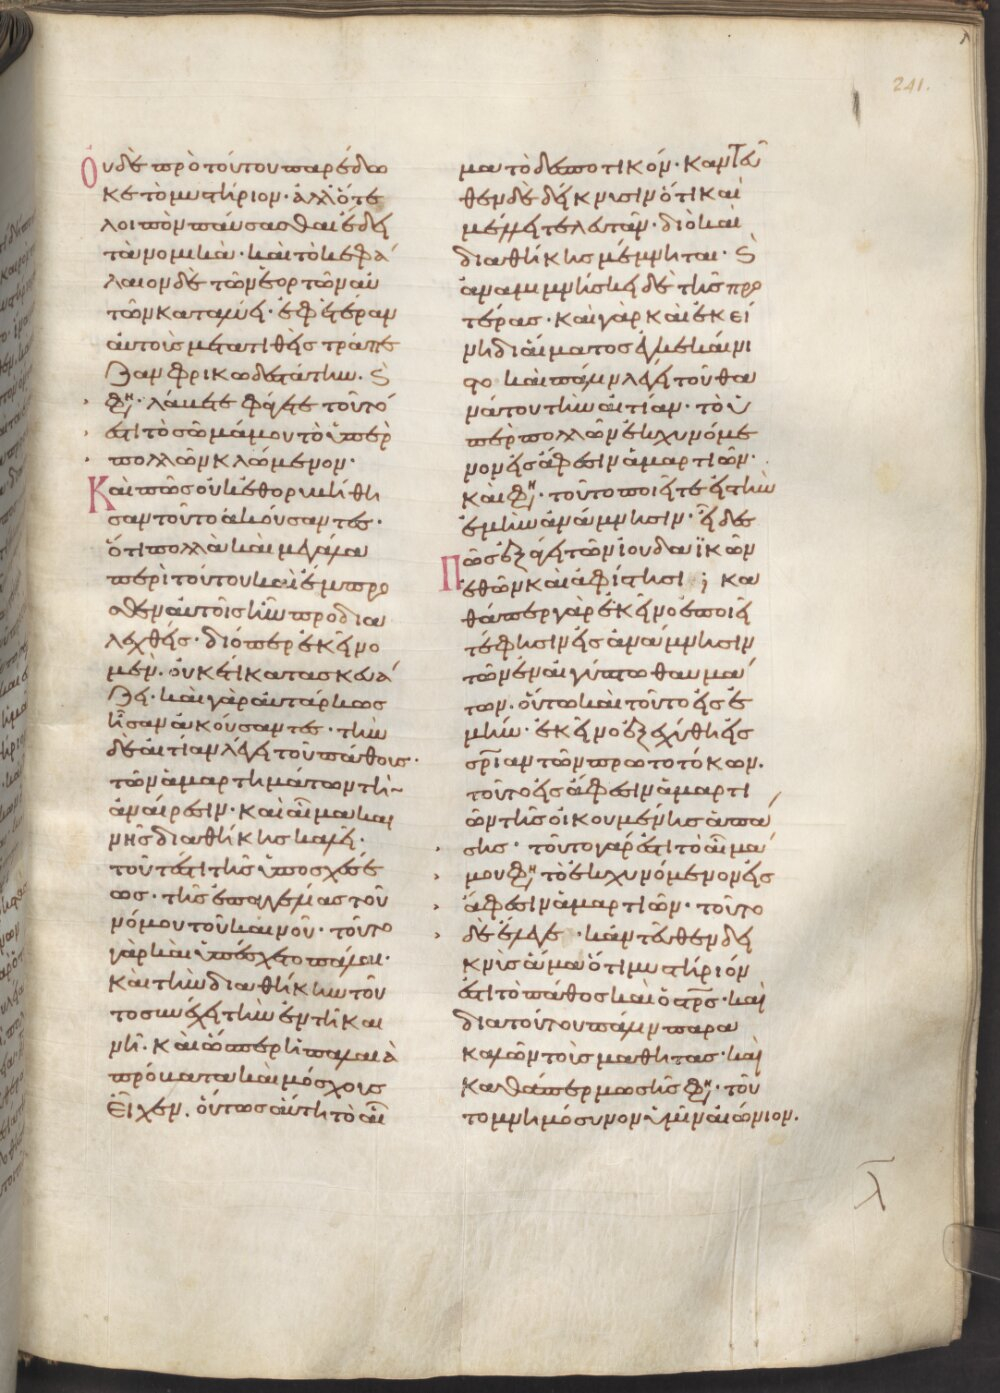 241.
Οὐδὲ πρὸ τούτου παρέδω
κε τὸ μυστήριον· ἀλλ' ὅτε
λοιπὸν παύσασθαι ἔδει
τὰ νομικὰ· καὶ τὸ κεφά
λαιον δὲ τῶν ἑορτῶν αὐ
τῶν καταλύει· ἐφ' ἑτέραν
αὐτοὺς μετατιθεὶς τράπε
ζαν φρικωδεστάτην. καὶ
φησι· λάβετε φάγετε τοῦτό
ἐστι τὸ σῶμά μου τὸ ὑπὲρ
πολλῶν κλώμενον·
Καὶ πῶς οὐκ ἐθορυβήθη
σαν τοῦτο ἀκούσαντες·
ὅτι πολλὰ καὶ μεγάλα
περὶ τούτου καὶ ἔμπρο
σθεν αὐτοῖς ἦν προδια
λεχθείς· διόπερ ἐκεῖνο
μὲν. οὐκέτι κατασκευά
ζει· καὶ γὰρ αὐτάρκως
ἦσαν ἀκούσαντες· τὴν
δὲ αἰτίαν λέγει τοῦ πάθους·
τῶν ἁμαρτημάτων τὴν
ἀναίρεσιν· καὶ αἷμα και
νῆς διαθήκης καλεῖ·
τουτέστι τῆς ὑποσχέσε
ως· τῆς ἐπαγγελίας τοῦ
νόμου τοῦ καινοῦ· τοῦτο
γὰρ καὶ ὑπέσχετο πάλαι·
καὶ τὴν διαθήκην τοῦ
το συνέχει τὴν ἐν τῇ και
νῇ. καὶ ὥσπερ ἡ παλαιὰ
πρόβατα καὶ μόσχους
εἶχεν. οὕτως αὕτη τὸ αἷ
μα τὸ δεσποτικόν· κἀντεῦ
θεν δὲ δείκνυσιν ὅτι καὶ
μέλλει τελευτᾶν· διὸ καὶ
διαθήκης μέμνηται· καὶ
ἀναμιμνήσκει δὲ τῆς προ
τέρας· καὶ γὰρ κἀκεί
νη δι' αἵματος ἐγκεκαίνι
στο καὶ πάλιν λέγει τοῦ θα
νάτου τὴν αἰτίαν· τὸ ὑ
πὲρ πολλῶν ἐκχυνόμε
νον εἰς ἄφεσιν ἁμαρτιῶν·
καὶ φησι· τοῦτο ποιεῖτε εἰς τὴν
ἐμὴν ἀνάμνησιν· εἶδες
πῶς ἐξάγει τῶν ἰουδαϊκῶν
ἐθῶν καὶ ἀφίστησι; κα
θάπερ γὰρ ἐκεῖνο ἐποιεῖ
τέ φησιν εἰς ἀνάμνησιν
τῶν ἐν αἰγύπτω θαυμά
των. οὕτω καὶ τοῦτο εἰς ἐ
μήν· ἐκεῖνο ἐξεχύθη εἰς
σρίαν τῶν πρωτοτόκων.
τοῦτο εἰς ἄφεσιν ἁμαρτι
ῶν τῆς οἰκουμένης ἁπά
σης· τοῦτο γάρ ἐστι τὸ αἷμά
μου φησι τὸ ἐκχυνόμενον εἰς
ἄφεσιν ἁμαρτιῶν· τοῦτο
δὲ ἔλεγε· κἀντεῦθεν δει
κνὺς ἅμα ὅτι μυστήριόν
ἐστι τὸ πάθος καὶ ὁ στρς· καὶ
διὰ τούτου πάλιν παρα
καλῶν τοὺς μαθητάς· καὶ
καθάπερ μωσῆς φησι· τοῦ
το μνημόσυνον ὑμῖν αἰώνιον.
λ